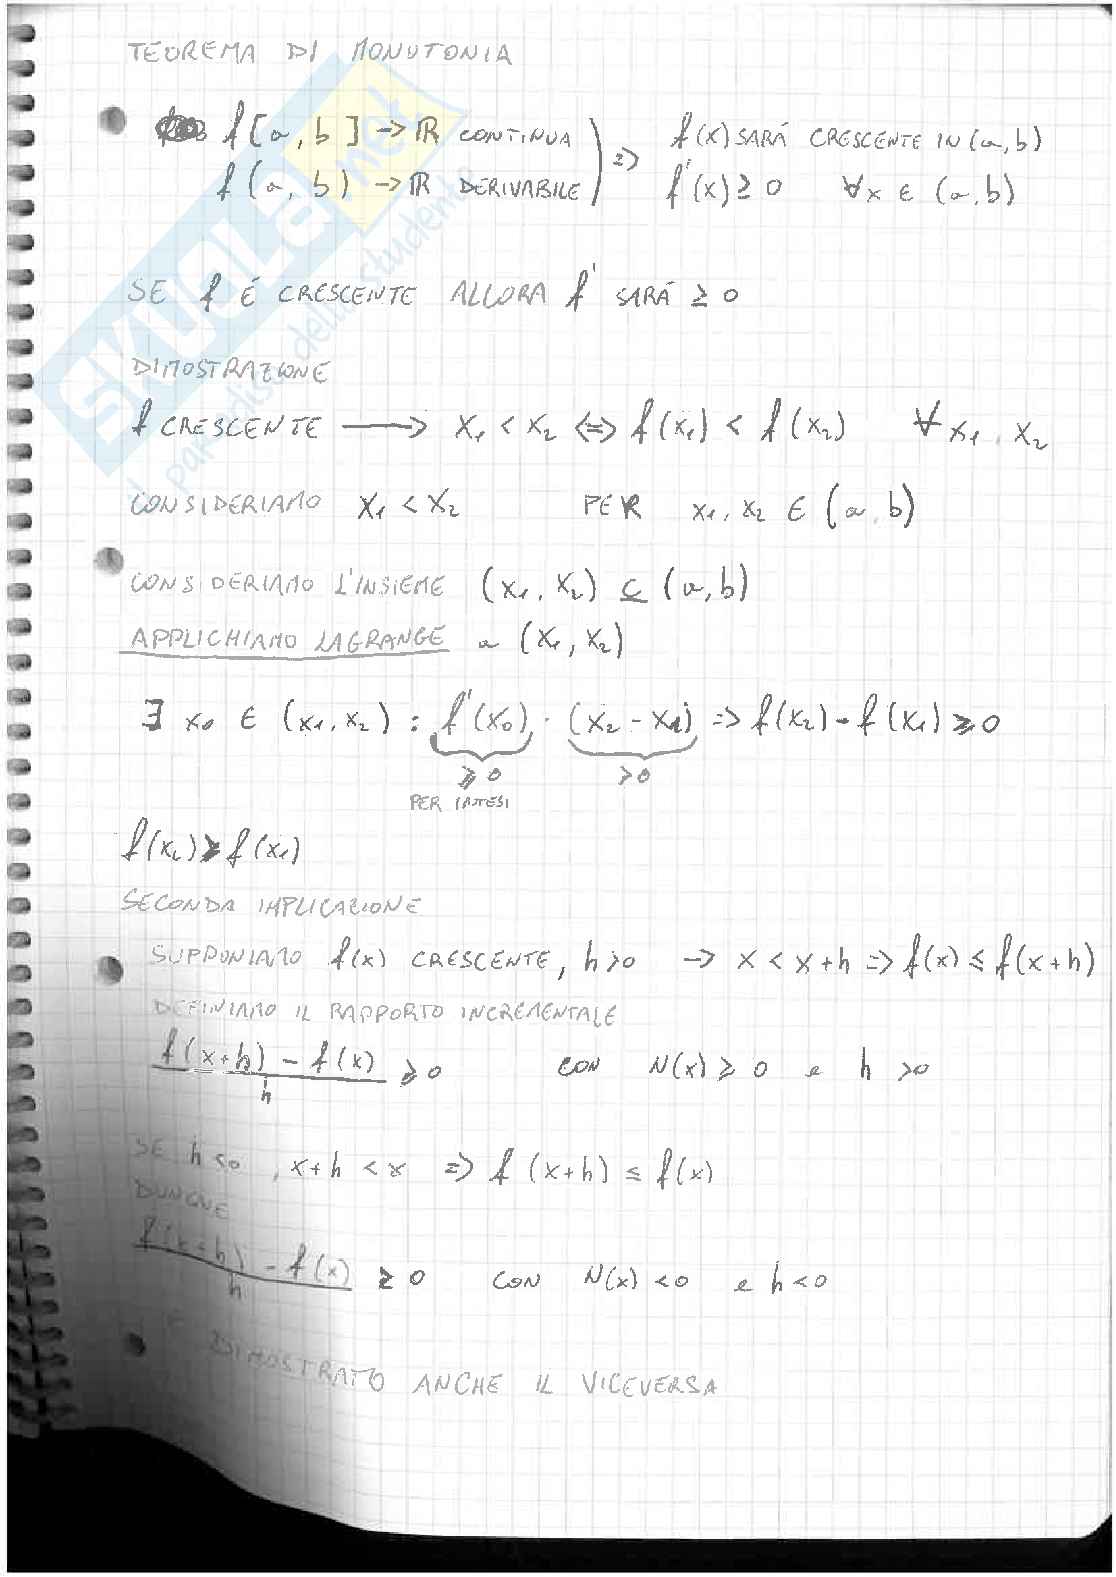 TEOREMA DI MONOTONIA
f[a, b] -> ℝ CONTINUA
f(a, b) -> ℝ DERIVABILE
=> f(x) SARÁ CRESCENTE IN (a, b)
f'(x) ≥ 0 ∀x ∈ (a, b)
SE f É CRESCENTE ALLORA f' SARÁ ≥ 0
DIMOSTRAZIONE
f CRESCENTE ⟶ x₁ < x₂ <=> f(x₁) < f(x₂) ∀ x₁, x₂
CONSIDERIAMO x₁ < x₂ PER x₁, x₂ ∈ (a, b)
CONSIDERIAMO L'INSIEME (x₁, x₂) ⊆ (a, b)
APPLICHIAMO LAGRANGE a (x₁, x₂)
∃ x₀ ∈ (x₁, x₂) : f'(x₀) · (x₂ - x₁) => f(x₂) - f(x₁) ≥ 0
≥ 0 > 0
PER IPOTESI
f(x₂) ≥ f(x₁)
SECONDA IMPLICAZIONE
SUPPONIAMO f(x) CRESCENTE, h>0 -> x < x+h => f(x) ≤ f(x+h)
DEFINIAMO IL RAPPORTO INCREMENTALE
f(x+h) - f(x) / h ≥ 0 CON N(x) ≥ 0 e h >0
SE h<0, x+h < x => f(x+h) ≤ f(x)
DUNQUE
f(x+h) - f(x) / h ≥ 0 CON N(x) <0 e h<0
É DIMOSTRATO ANCHE IL VICEVERSA
SKUOLA.net
il paradiso dello studente